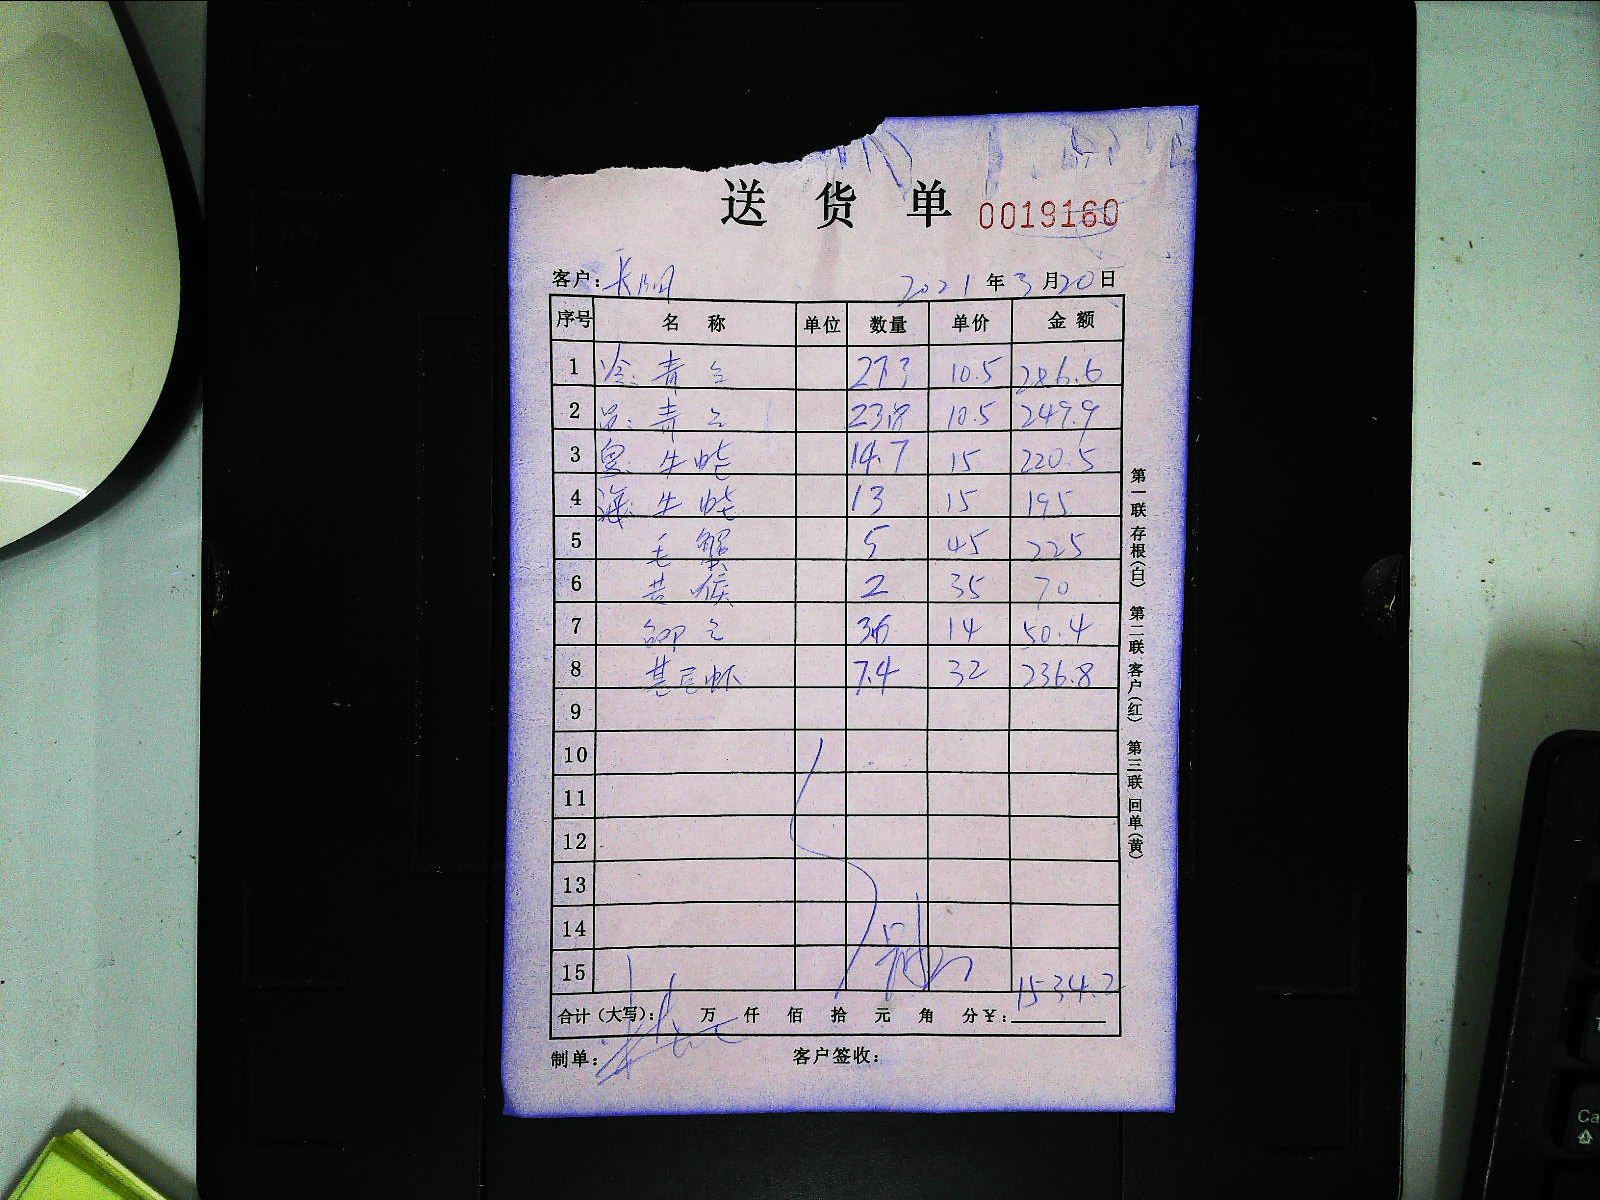 送 货 单 0019160
客户: 2021 年 3 月 20 日
序号 名 称 单位 数量 单价 金 额
1 冷: 青 27.3 10.5 286.6
2 青 23.8 10.5 249.9
3 牛蛙 14.7 15 220.5
4 海: 牛蛙 13 15 195
5 毛 蟹 5 45 225
6 2 35 70
7 3.6 14 50.4
8 基尾虾 7.4 32 236.8
9
10
11
12
13
14
15 1534.2
合计(大写): 万 仟 佰 拾 元 角 分 ¥:
制单: 客户签收:
第一联 存根(白) 第二联 客户(红) 第三联 回单(黄)